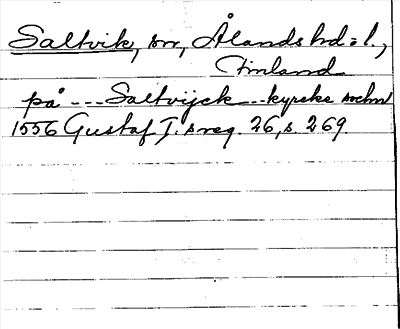 Saltvik, sn, Ålands hd o l.,
Finland
på --- Saltvijck -- kyrcke sochn
1556 Gustaf I:s reg. 26, s. 269